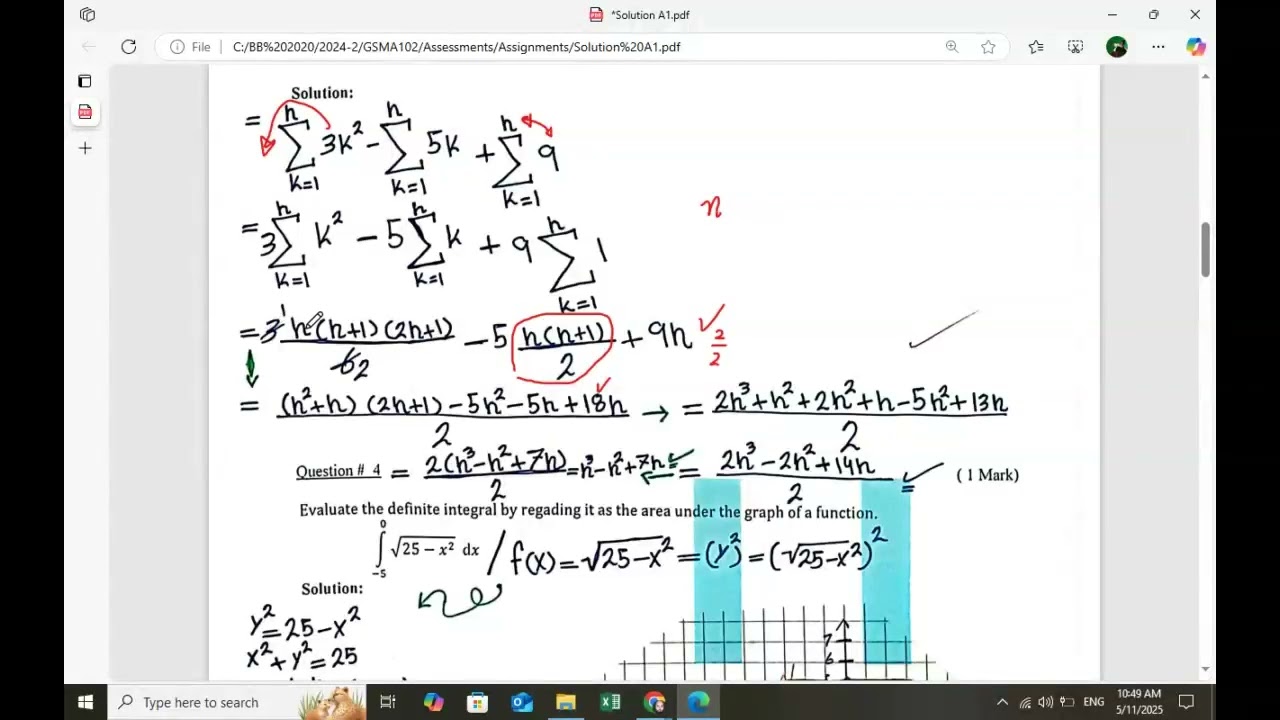 *Solution A1.pdf
File C:/BB%202020/2024-2/GSMA102/Assessments/Assignments/Solution%20A1.pdf
Solution:
= n∑k=1 3k² - n∑k=1 5k + n∑k=1 9
= 3 n∑k=1 k² - 5 n∑k=1 k + 9 n∑k=1 1
n
= 3 1 n(n+1)(2n+1)/6 2 - 5 n(n+1)/2 + 9n ✓ 2/2
= (n²+n)(2n+1)-5n²-5n+18n/2 → = 2n³+n²+2n²+n-5n²+13n/2
Question # 4 = 2(n³-n²+7n)/2 = n³-n²+7n = 2n³-2n²+14n/2 ( 1 Mark)
Evaluate the definite integral by regading it as the area under the graph of a function.
0∫-5 √25 − x² dx / f(x) = √25-x² = (y²) = (√25-x²)²
Solution:
y² = 25-x²
x²+y² = 25
7
6
Type here to search
ENG
10:49 AM
5/11/2025